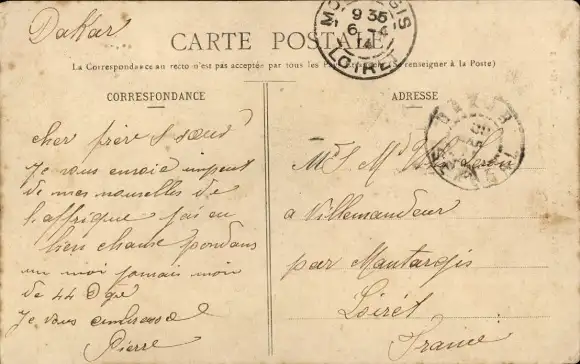 Dakar
CARTE POSTALE
La Correspondance au recto n'est pas acceptée par tous les Pays (Se renseigner à la Poste)
MONTARGIS
9 35
6 - 4
14
LOIRET
CORRESPONDANCE
cher frère & sœur
Je vous envoie
de mes nouvelles de
l'affrique j'ai eu
bien chause pendans
un moi jamais moin
de 44 D
Je vous embrasse
Pierre
ADRESSE
DAKAR
SENEGAL
a Villemandeur
par Montargis
Loirêt
France